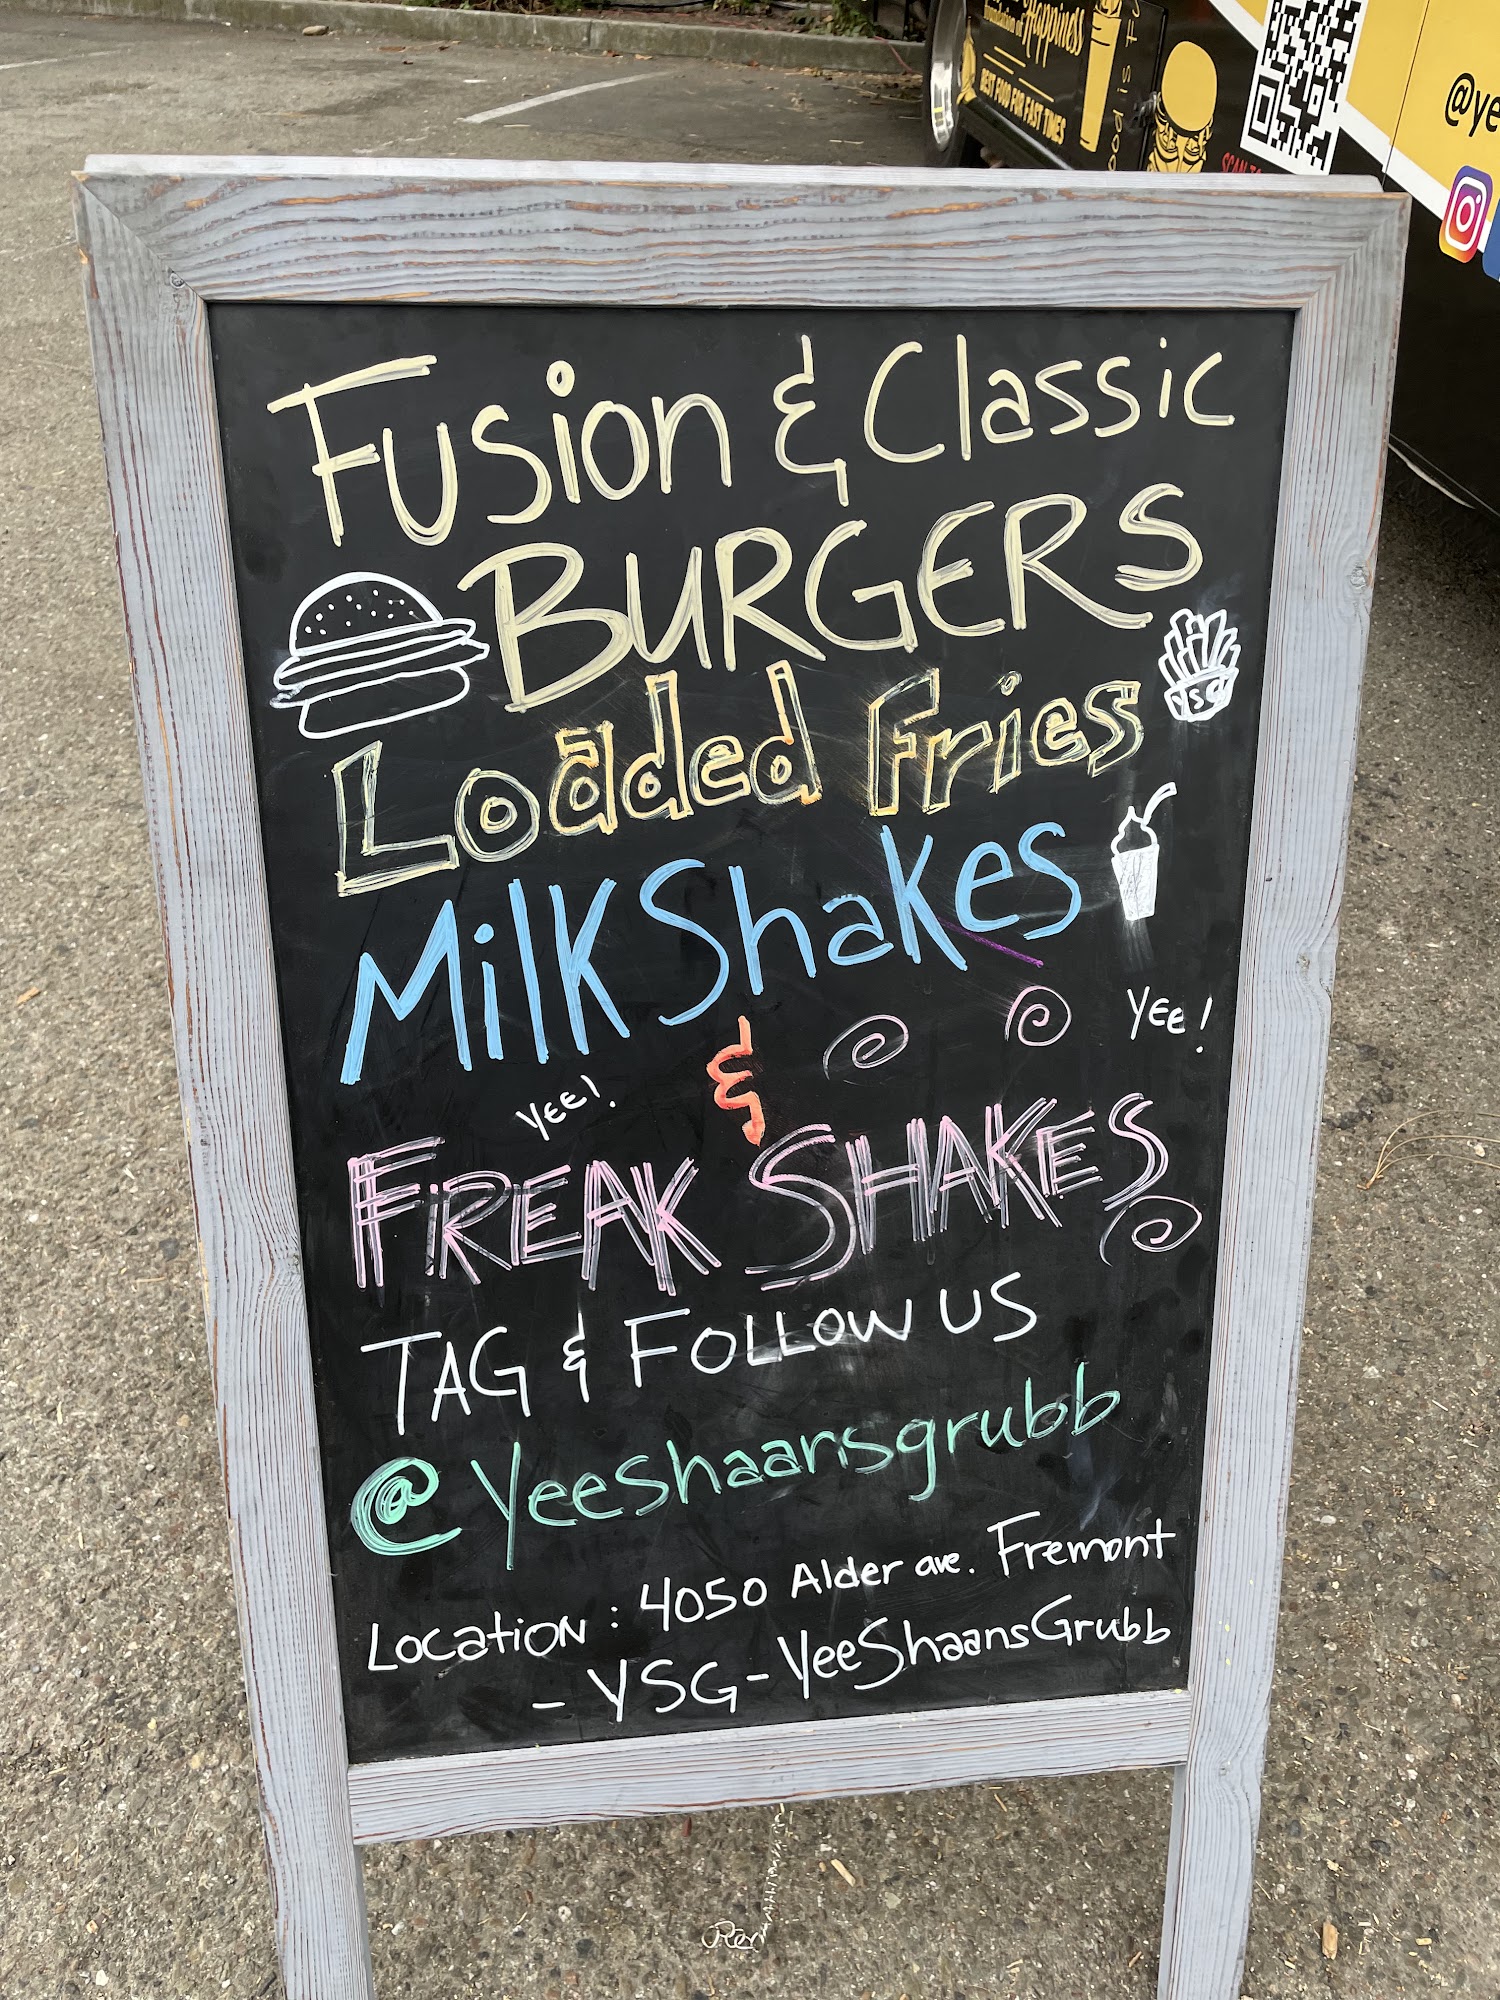 Happiness
BEST FOOD FOR FAST TIMES
@ye
Fusion & Classic
BURGERS
Loaded Fries
YSG
MilkShakes
YEE!
&
YEE!
FREAK SHAKES
TAG & FOLLOW US
@Yeeshaansgrubb
LOCATION: 4050 Alder ave. Fremont
- YSG - YeeShaansGrubb